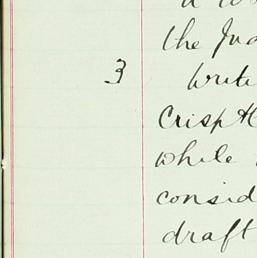 the Jud
3 Write
Crisp H
while
consid
draft